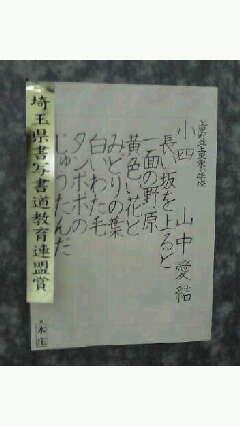 小四 山中愛結
長い坂を上ると
一面の野原
黄色い花と
みどりの葉
白いわた毛
タンポポの
じゅうたんだ
埼玉県書写書道教育連盟賞